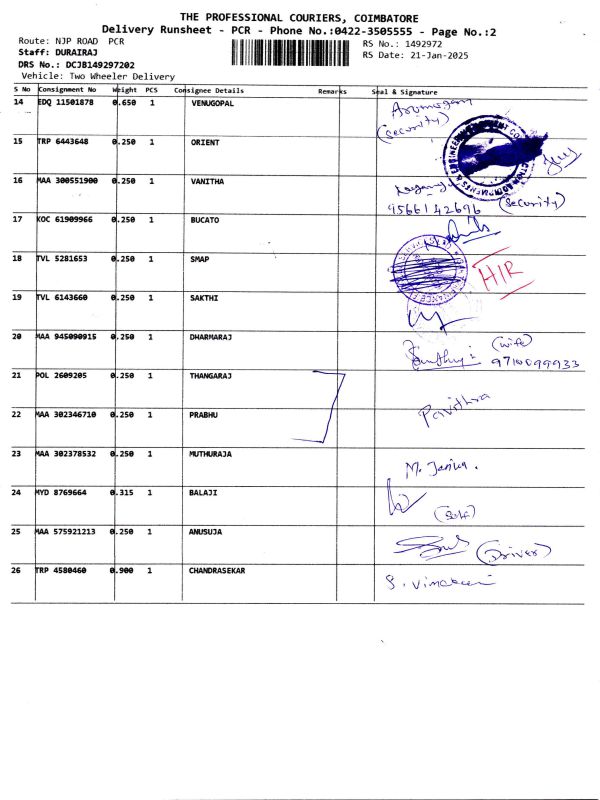 THE PROFESSIONAL COURIERS, COIMBATORE
Delivery Runsheet - PCR - Phone No.:0422-3505555 - Page No.:2
Route: NJP ROAD PCR
RS No.: 1492972
Staff: DURAIRAJ
RS Date: 21-Jan-2025
DRS No.: DCJB149297202
Vehicle: Two Wheeler Delivery
S No Consignment No Weight PCS Consignee Details Remarks Seal & Signature
14 EDQ 11501878 0.650 1 VENUGOPAL Arumugam
(security)
15 TRP 6443648 0.250 1 ORIENT
16 MAA 300551900 0.250 1 VANITHA
9566142696 (security)
17 KOC 61909966 0.250 1 BUCATO
18 TVL 5281653 0.250 1 SMAP
HIR
19 TVL 6143660 0.250 1 SAKTHI
20 MAA 945090915 0.250 1 DHARMARAJ (wife)
9710099933
21 POL 2609205 0.250 1 THANGARAJ
Pavithra
22 MAA 302346710 0.250 1 PRABHU
23 MAA 302378532 0.250 1 MUTHURAJA M. Janika.
24 MYD 8769664 0.315 1 BALAJI
(Self)
25 MAA 575921213 0.250 1 ANUSUJA (Driver)
26 TRP 4580460 0.900 1 CHANDRASEKAR